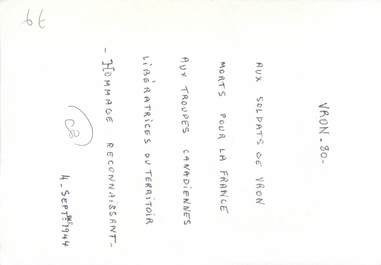 VRON - 80 -
AUX SOLDATS DE VRON
MORTS POUR LA FRANCE
AUX TROUPES CANADIENNES
LIBÉRATRICES DU TERRITOIR
- HOMMAGE RECONNAISSANT -
4 - SEPTBRE 1944